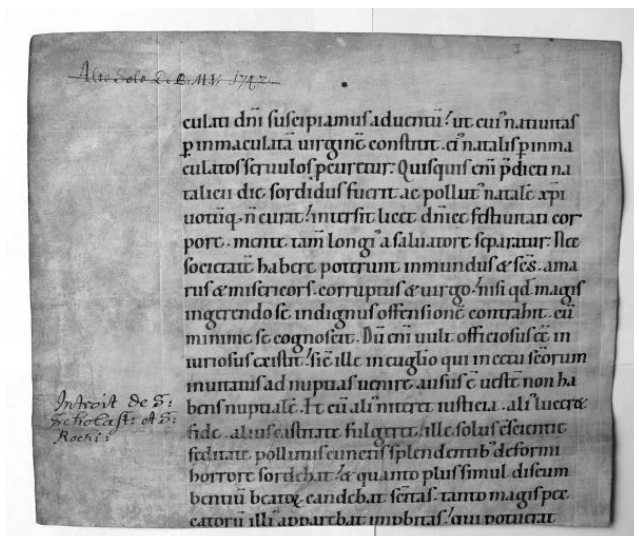 Alto Solo D. C. M.V. 1742
culati dnī suscipiamus aduentū. ut cui' natiuitas
p̱ inmaculatā uirginē constitit. ei' natalis p̱ inma
culatos seruulos ꝓcuretur. Quisquis enī p̄dicti na
talicii die sordidus fuerit ac pollut' natalē xp̄i
uotūq. n̄ curat. intersit licet dnīcę festiuitati cor
pore. mente tam̄ longi' a saluatore separatur. Nec
societatē habere poterunt inmundus & scs̄. ama
rus & misericors. corruptus & uirgo. nisi qd̄ magis
ingerendo se indignus offensionē contrahit. cū
minime se cognoscit. Dū enī uult officiosus eē in
iuriosus existit. sic̄ ille in euglio qui in cetu scōrum
inuitatus ad nuptias uenire ausus ē uestē non ha
bens nuptialē. Et cū ali' niteret iusticia. ali' luceret
fide. alius castitate fulgeret. ille solus
feditate pollutus cunctis splendentib' deformi
horrore sordebat. & quanto plus simul discum
bentiū beatoꝝ candebat scītas. tanto magis pec
catorū illi' apparebat inp̱bitas. qui potuerat
Introit de S:
Scholast: et S:
Rochi: